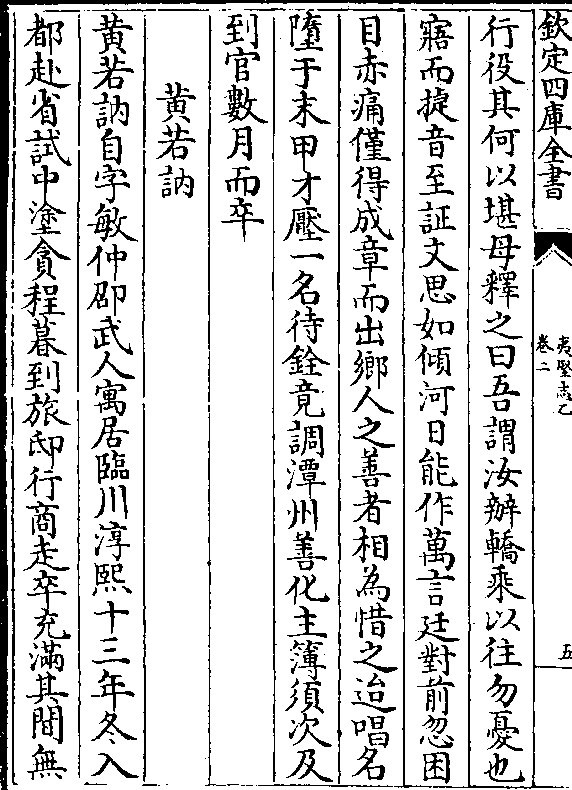 欽定四庫全書
夷堅志乙
卷二
五
行役其何以堪母釋之曰吾謂汝辦轎乘以往勿憂也
寤而捷音至証文思如傾河日能作萬言廷對前忽困
目赤痛僅得成章而出鄉人之善者相為惜之迨唱名
墮于末甲才壓一名待銓竟調潭州善化主簿須次及
到官數月而卒
黄若訥
黄若訥自字敏仲邵武人寓居臨川淳熙十三年冬入
都赴省試中塗貪程暮到旅邸行商走卒充滿其間無